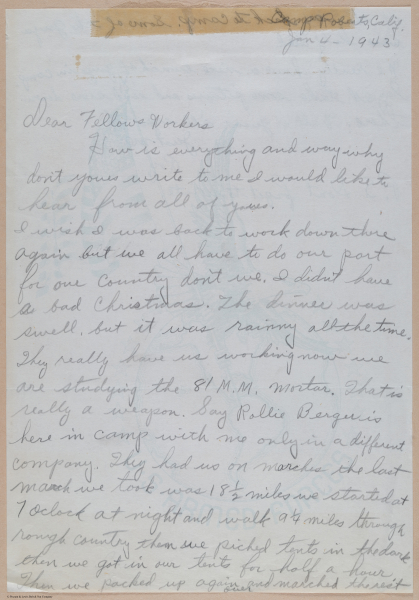 Camp Roberts, Calif.
Jan 4 - 1943
Dear Fellows Workers
How is everything and way why
dont youes write to me I would like to
hear from all of youes.
I wish I was back to work down there
again but we all have to do our part
for our Country dont we. I didn't have
a bad Christmas. The dinner was
swell. but it was rainny all the time.
They really have us working now we
are studying the 81 M.M. mortar. That is
really a weapon. Say Rollie Berger is
here in camp with me only in a different
company. They had us on marches the last
march we took was 18 1/2 miles we started at
7 Oclock at night and walk 9 1/2 miles through
rough country then we piched tents in the dark
then we got in our tents for half a hour.
Then we packed up again and marched the rest
over